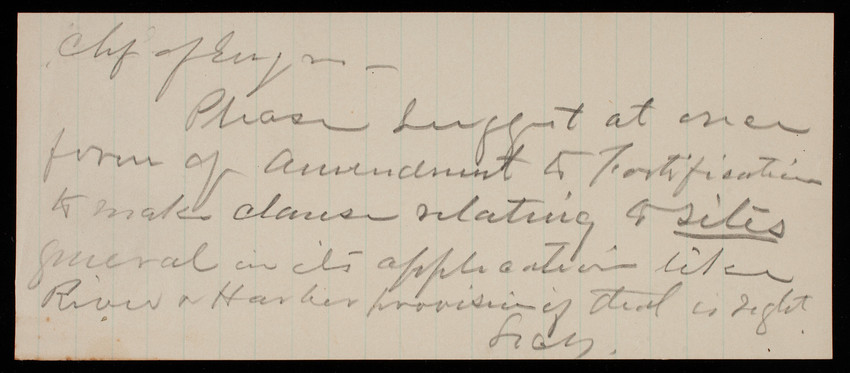 Chf of Engrs –
Please suggest at once
form of amendment to Fortification
to make clause relating to sites
general in its application like
River & Harbor provision if that is right
Secy.